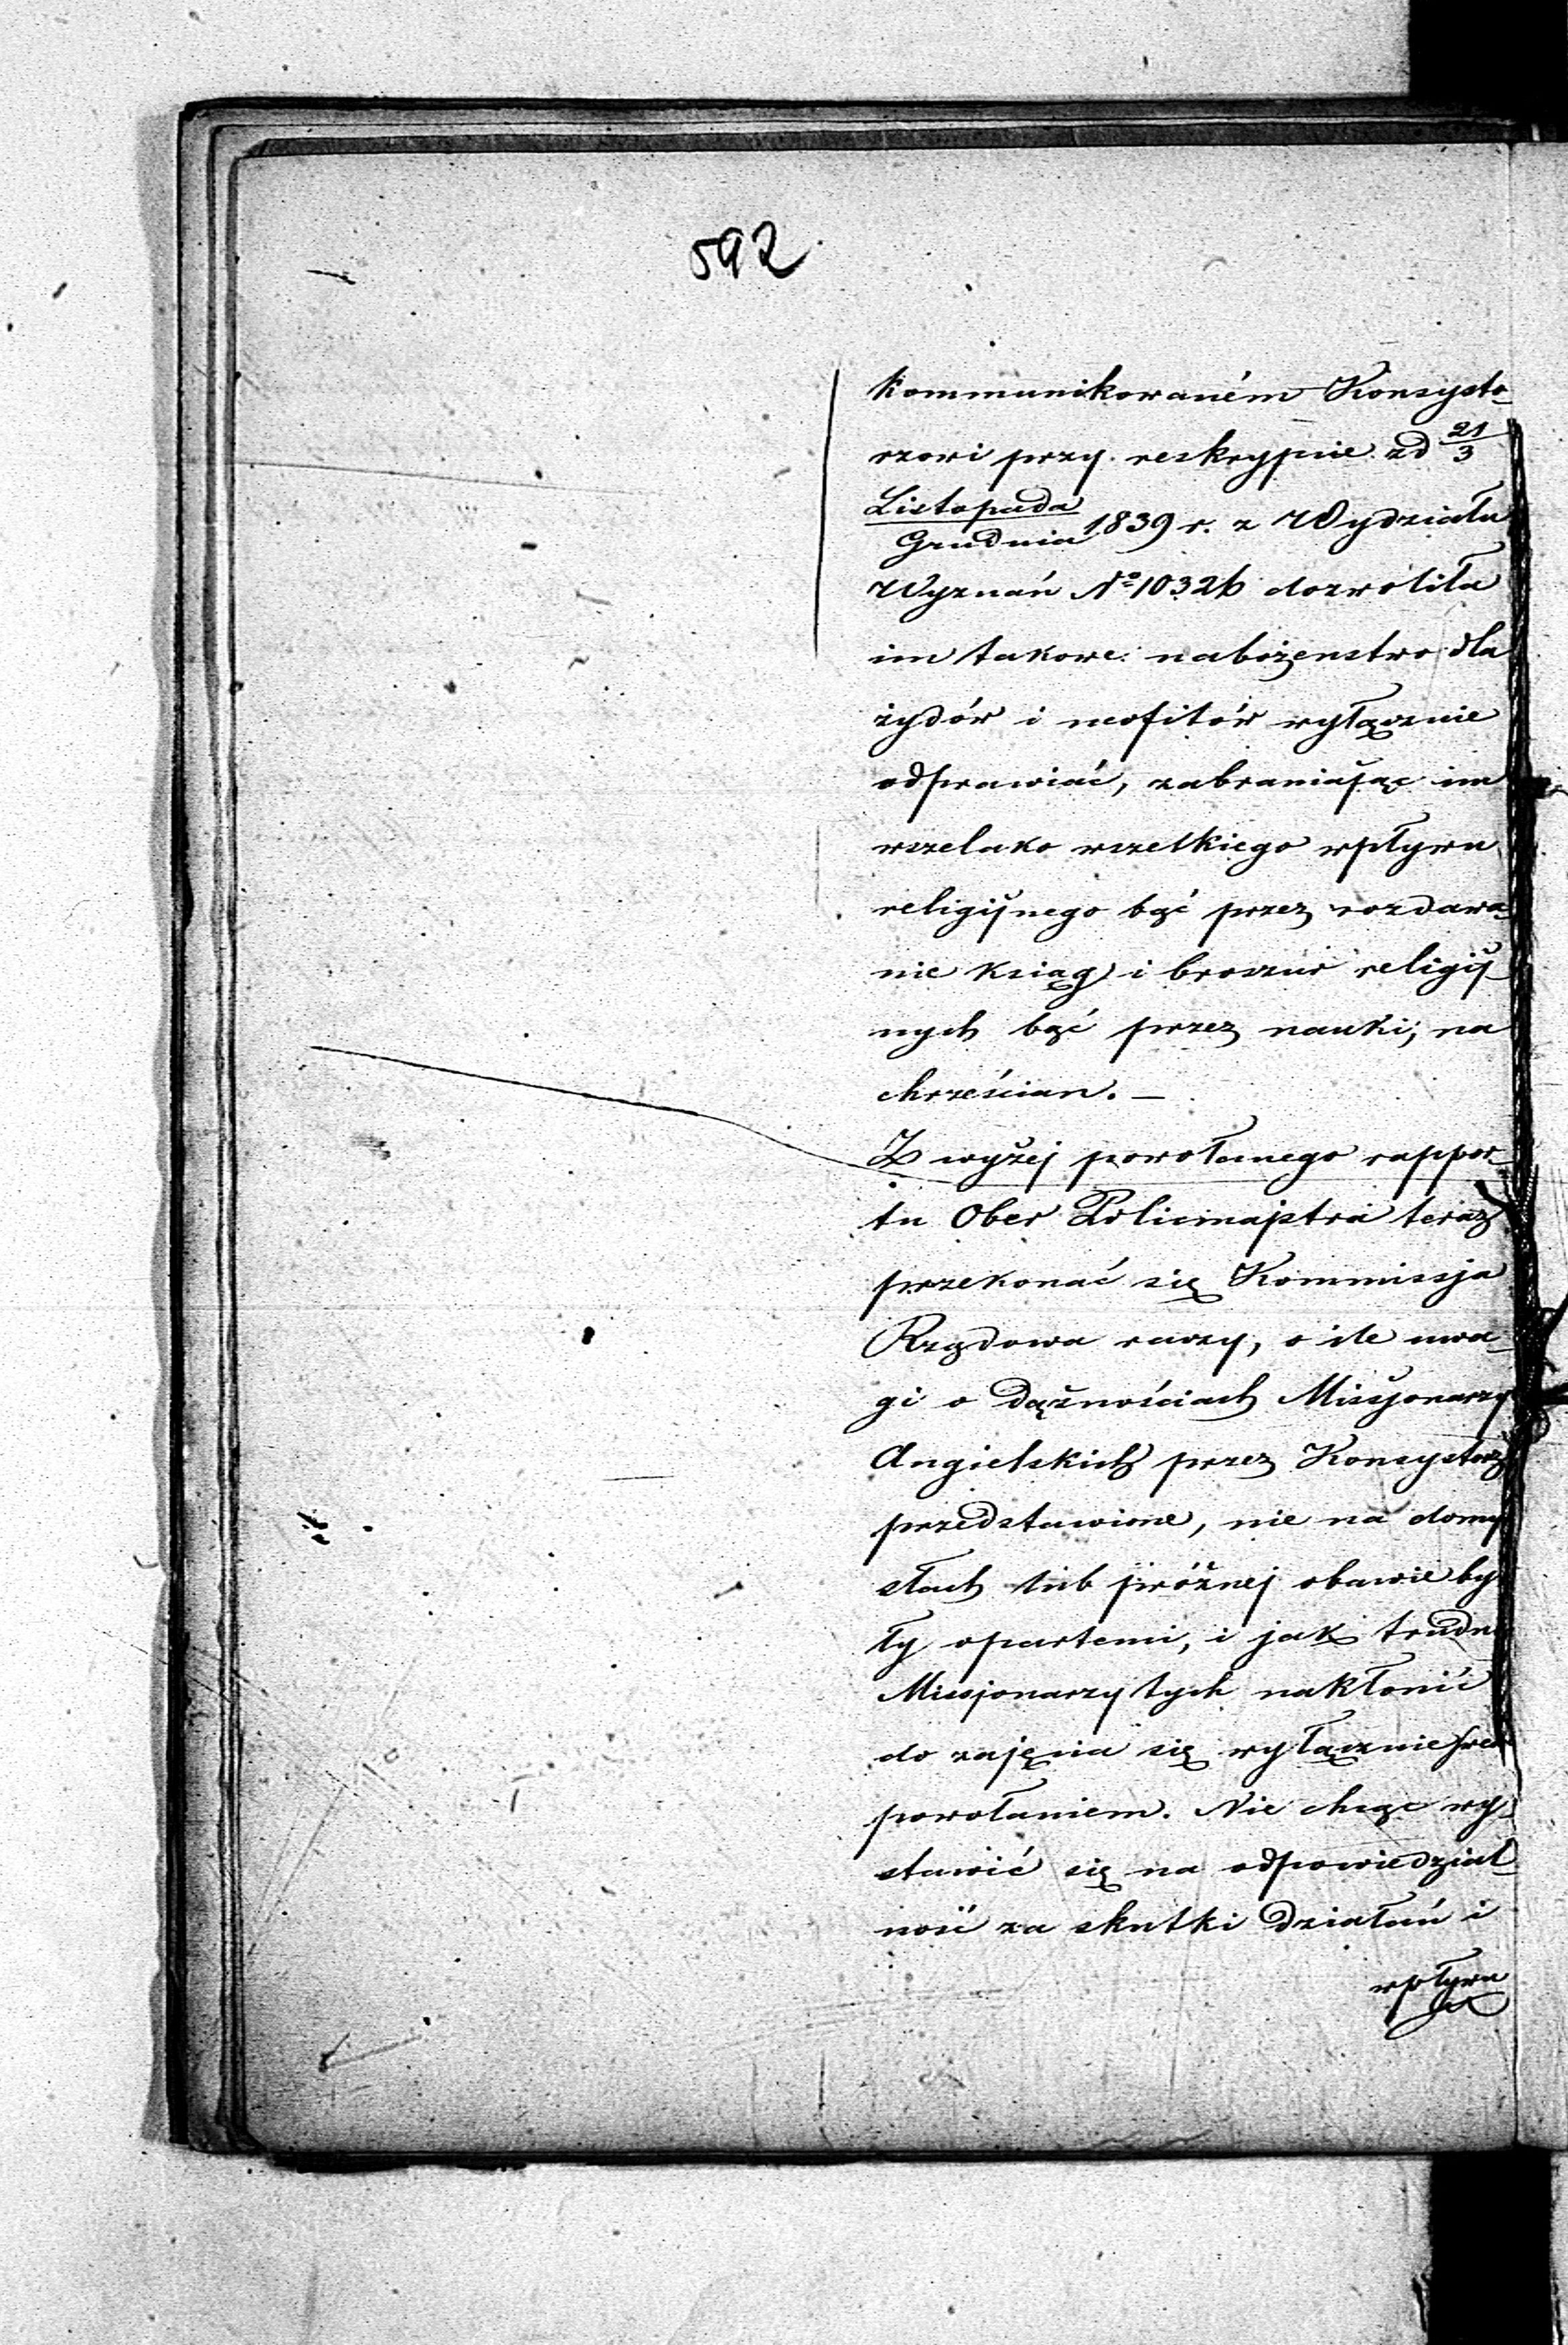 592
kommunikowaném Konsysto-
rzowi przy reskrypcie zd 21/3
Listopada/Grudnia 1839 r. z Wydziału
Wyznań No 10326 dozwoliła
im takowe nabożenstwo dla
żydów i neofitów wyłącznie
odprawiać, zabraniając im
wszelako wszelkiego wpływu
religijnego bąć przez rozdawa-
nie ksiąg i broszur religij-
nych bąć przez nauki, na
chrześcian. —
Z wyżej powołanego rappor-
tu Ober Policmajstra teraz
przekonać się Kommissja
Rządowa raczy, o ile uwa-
gi o dążnościach Missjonarzy
Angielskich przez Konsystorz
przedstawione, nie na domy
słach lub próżnej obawie by-
ły opartemi, i jak trudno
Missjonarzy tych nakłonić
do zajęcia się wyłącznie swem
powołaniem. Nie chcąc wy-
stawić się na odpowiedzial-
ność za skutki działań i
wpływu